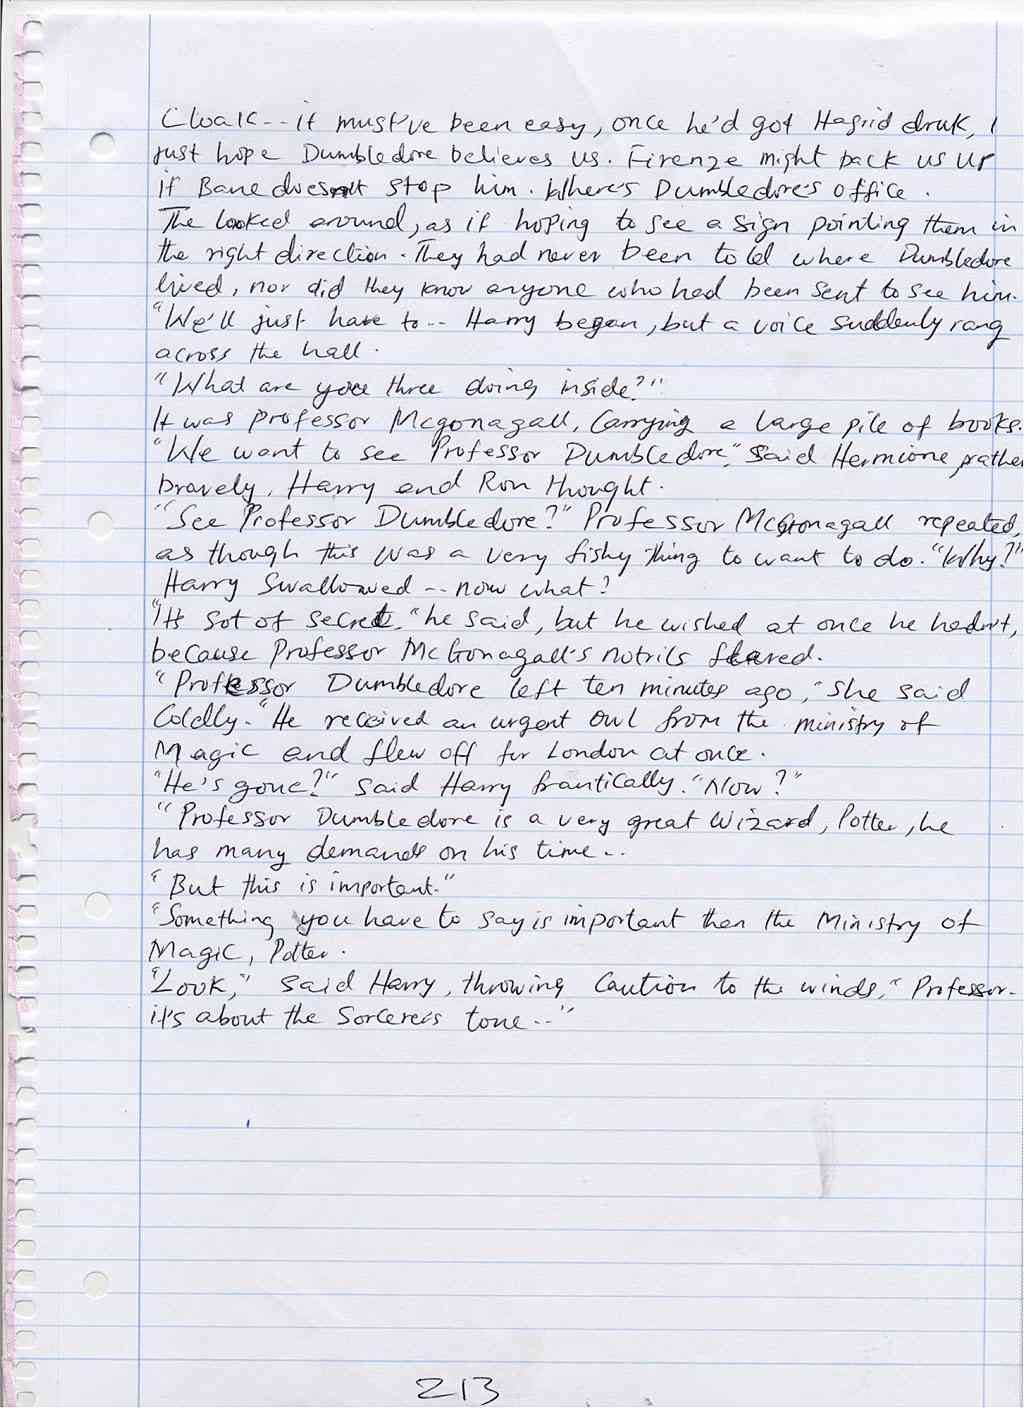 Cloak-- it must've been easy, once he'd got Hagrid druk, I
just hope Dumbledore believes us. Firenze might back us up
if Bane doesn't stop him. Where's Dumbledore's office.
The looked around, as if hoping to see a sign pointing them in
the right direction. They had never been told where Dumbledore
lived, nor did they know anyone who had been sent to see him.
"We'll just have to -- Harry began, but a voice suddenly rang
across the hall.
"What are you three doing inside?"
It was professor Mcgonagall, Carrying a large pile of books.
"We want to see Professor Dumbledore," said Hermione, rather
bravely, Harry and Ron thought.
"See Professor Dumbledore?" Professor McGonagall repeated,
as though this was a very fishy thing to want to do. "Why?"
Harry Swallowed -- now what?
"It sot of secret," he said, but he wished at once he hadn't,
because Professor McGonagall's notrils flared.
"Professor Dumbledore left ten minutes ago," she said
Coldly. "He received an urgent owl from the ministry of
Magic and flew off for London at once.
"He's gone?" said Harry frantically. "Now?"
"Professor Dumbledore is a very great Wizard, Potter, he
has many demands on his time --
"But this is important."
"Something you have to say is important then the Ministry of
Magic, Potter.
"Look," said Harry, throwing Caution to the winds, "Professor-
it's about the Sorcerer's tone --"
213